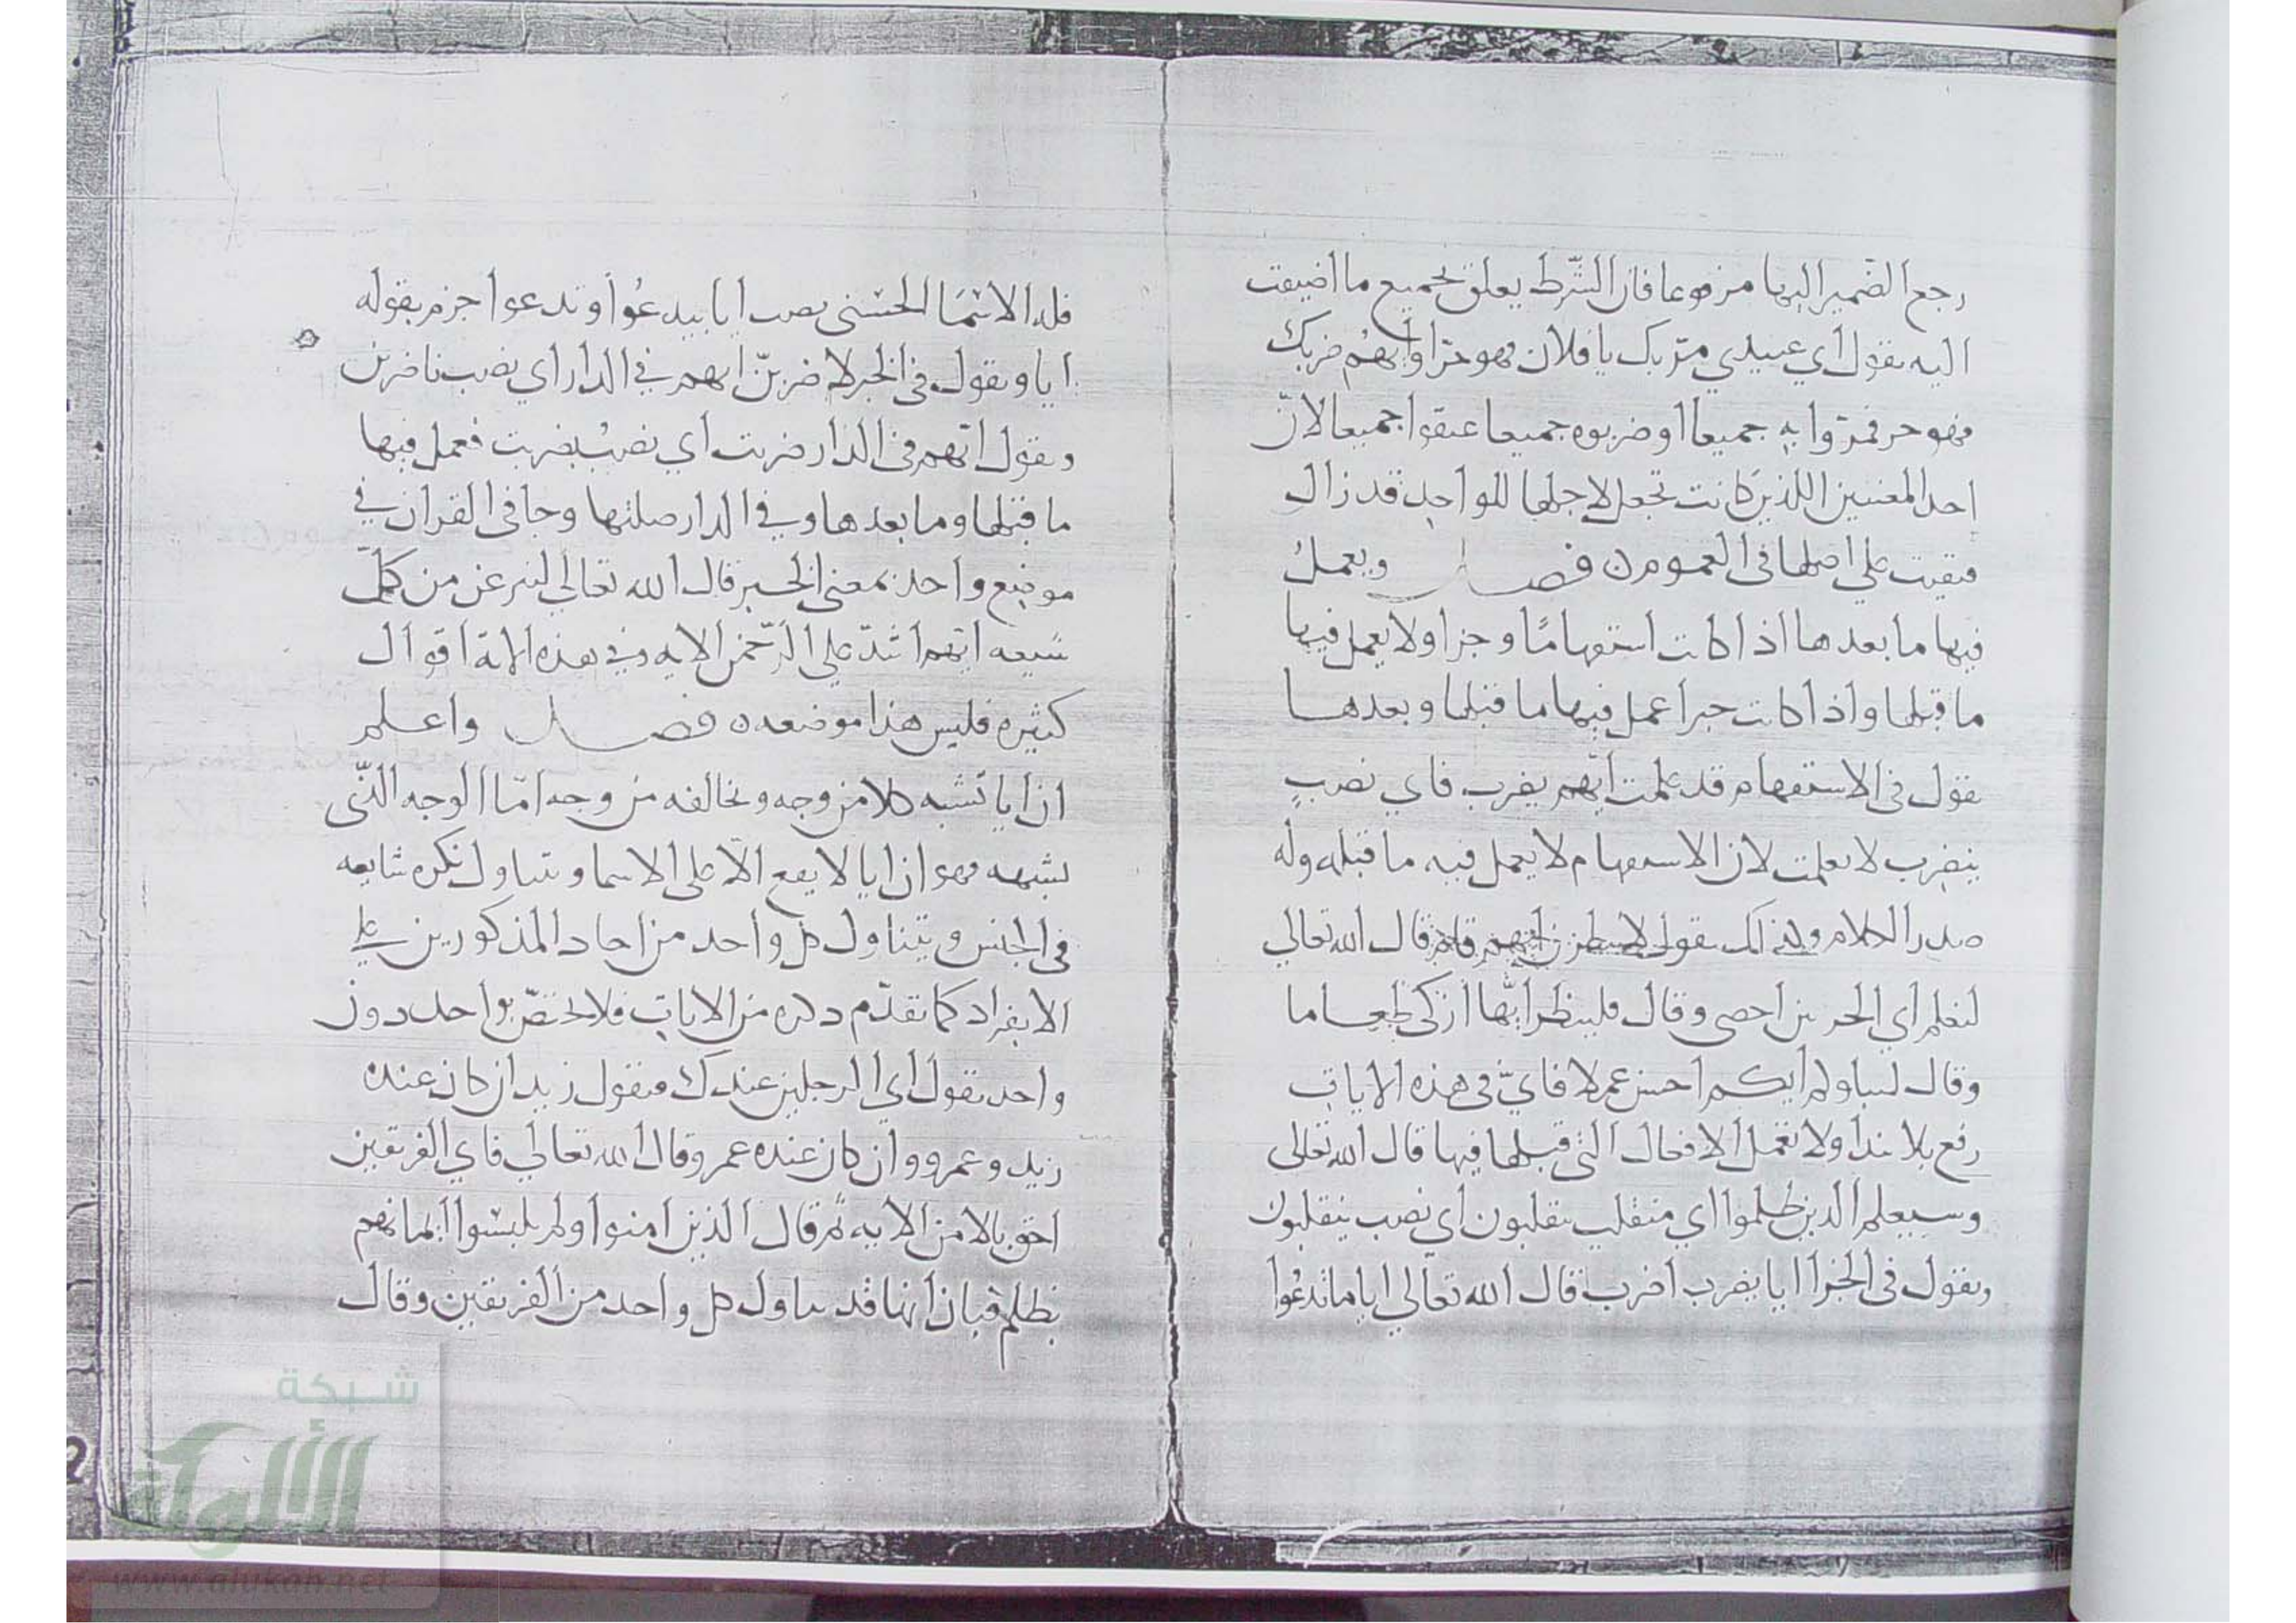 رجع الضمير اليها مرفوعا فان الشرط يعلق بجميع ما اضيفت
اليه تقول اي عبيدي مر بك يا فلان فهو حر او ايهم ضربك
فهو حر فمروا به جميعا او ضربوه جميعا عتقوا جميعا لان
احد المعنيين اللذين كانت تجعل لاجلها للواحد قد زال
فبقيت على اصلها في العموم ن فصل ويعمل
فيها ما بعدها اذا كانت استفهاما وجزا ولا يعمل فيها
ما قبلها واذا كانت خبرا عمل فيها ما قبلها وبعدها
تقول في الاستفهام قد علمت ايهم يضرب فاي نصب
بيضرب لا بعلمت لان الاستفهام لا يعمل فيه ما قبله وله
صدر الكلام ولذلك تقول لانظرن ايهم قام قال الله تعالى
لنعلم اي الحزبين احصى وقال فلينظر ايها ازكى طعاما
وقال ليبلوكم ايكم احسن عملا فاي في هذه الايات
رفع بلابتدا ولا تعمل الافعال التي قبلها فيها قال الله تعالى
وسيعلم الذين ظلموا اي منقلب ينقلبون اي نصب بينقلبون
وتقول في الجزا ايا يضرب اضرب قال الله تعالى ايا ما تدعوا
فله الاسما الحسنى نصب ايا بتدعوا وتدعوا جزم بقوله
ايا وتقول في الخبر لاضربن ايهم في الدار اي نصب باضربن
وتقول ايهم في الدار ضربت اي نصب بضربت فعمل فيها
ما قبلها وما بعدها وفي الدار صلتها وجا في القران في
موضع واحد بمعنى الخبر قال الله تعالى لننزعن من كل
شيعه ايهم اشد على الرحمن الايه وفي هذه الاية اقوال
كثيره فليس هذا موضعه ن فصل واعلم
ان ايا تشبه كلا من وجه وتخالفه من وجه اما الوجه الذي
تشبهه فهو ان ايا لا يقع الا على الاسما ويتناول نكره شايعه
في الجنس ويتناول كل واحد من احاد المذكورين على
الانفراد كما تقدم ذكره من الايات فلا تختص بواحد دون
واحد تقول اي الرجلين عندك فتقول زيد ان كان عنده
زيد وعمرو وان كان عنده عمرو قال الله تعالى فاي الفريقين
احق بالامن الايه ثم قال الذين امنوا ولم يلبسوا ايمانهم
بظلم فبان انها قد تناول كل واحد من الفريقين وقال
شبكة
الألوكة
www.alukah.net